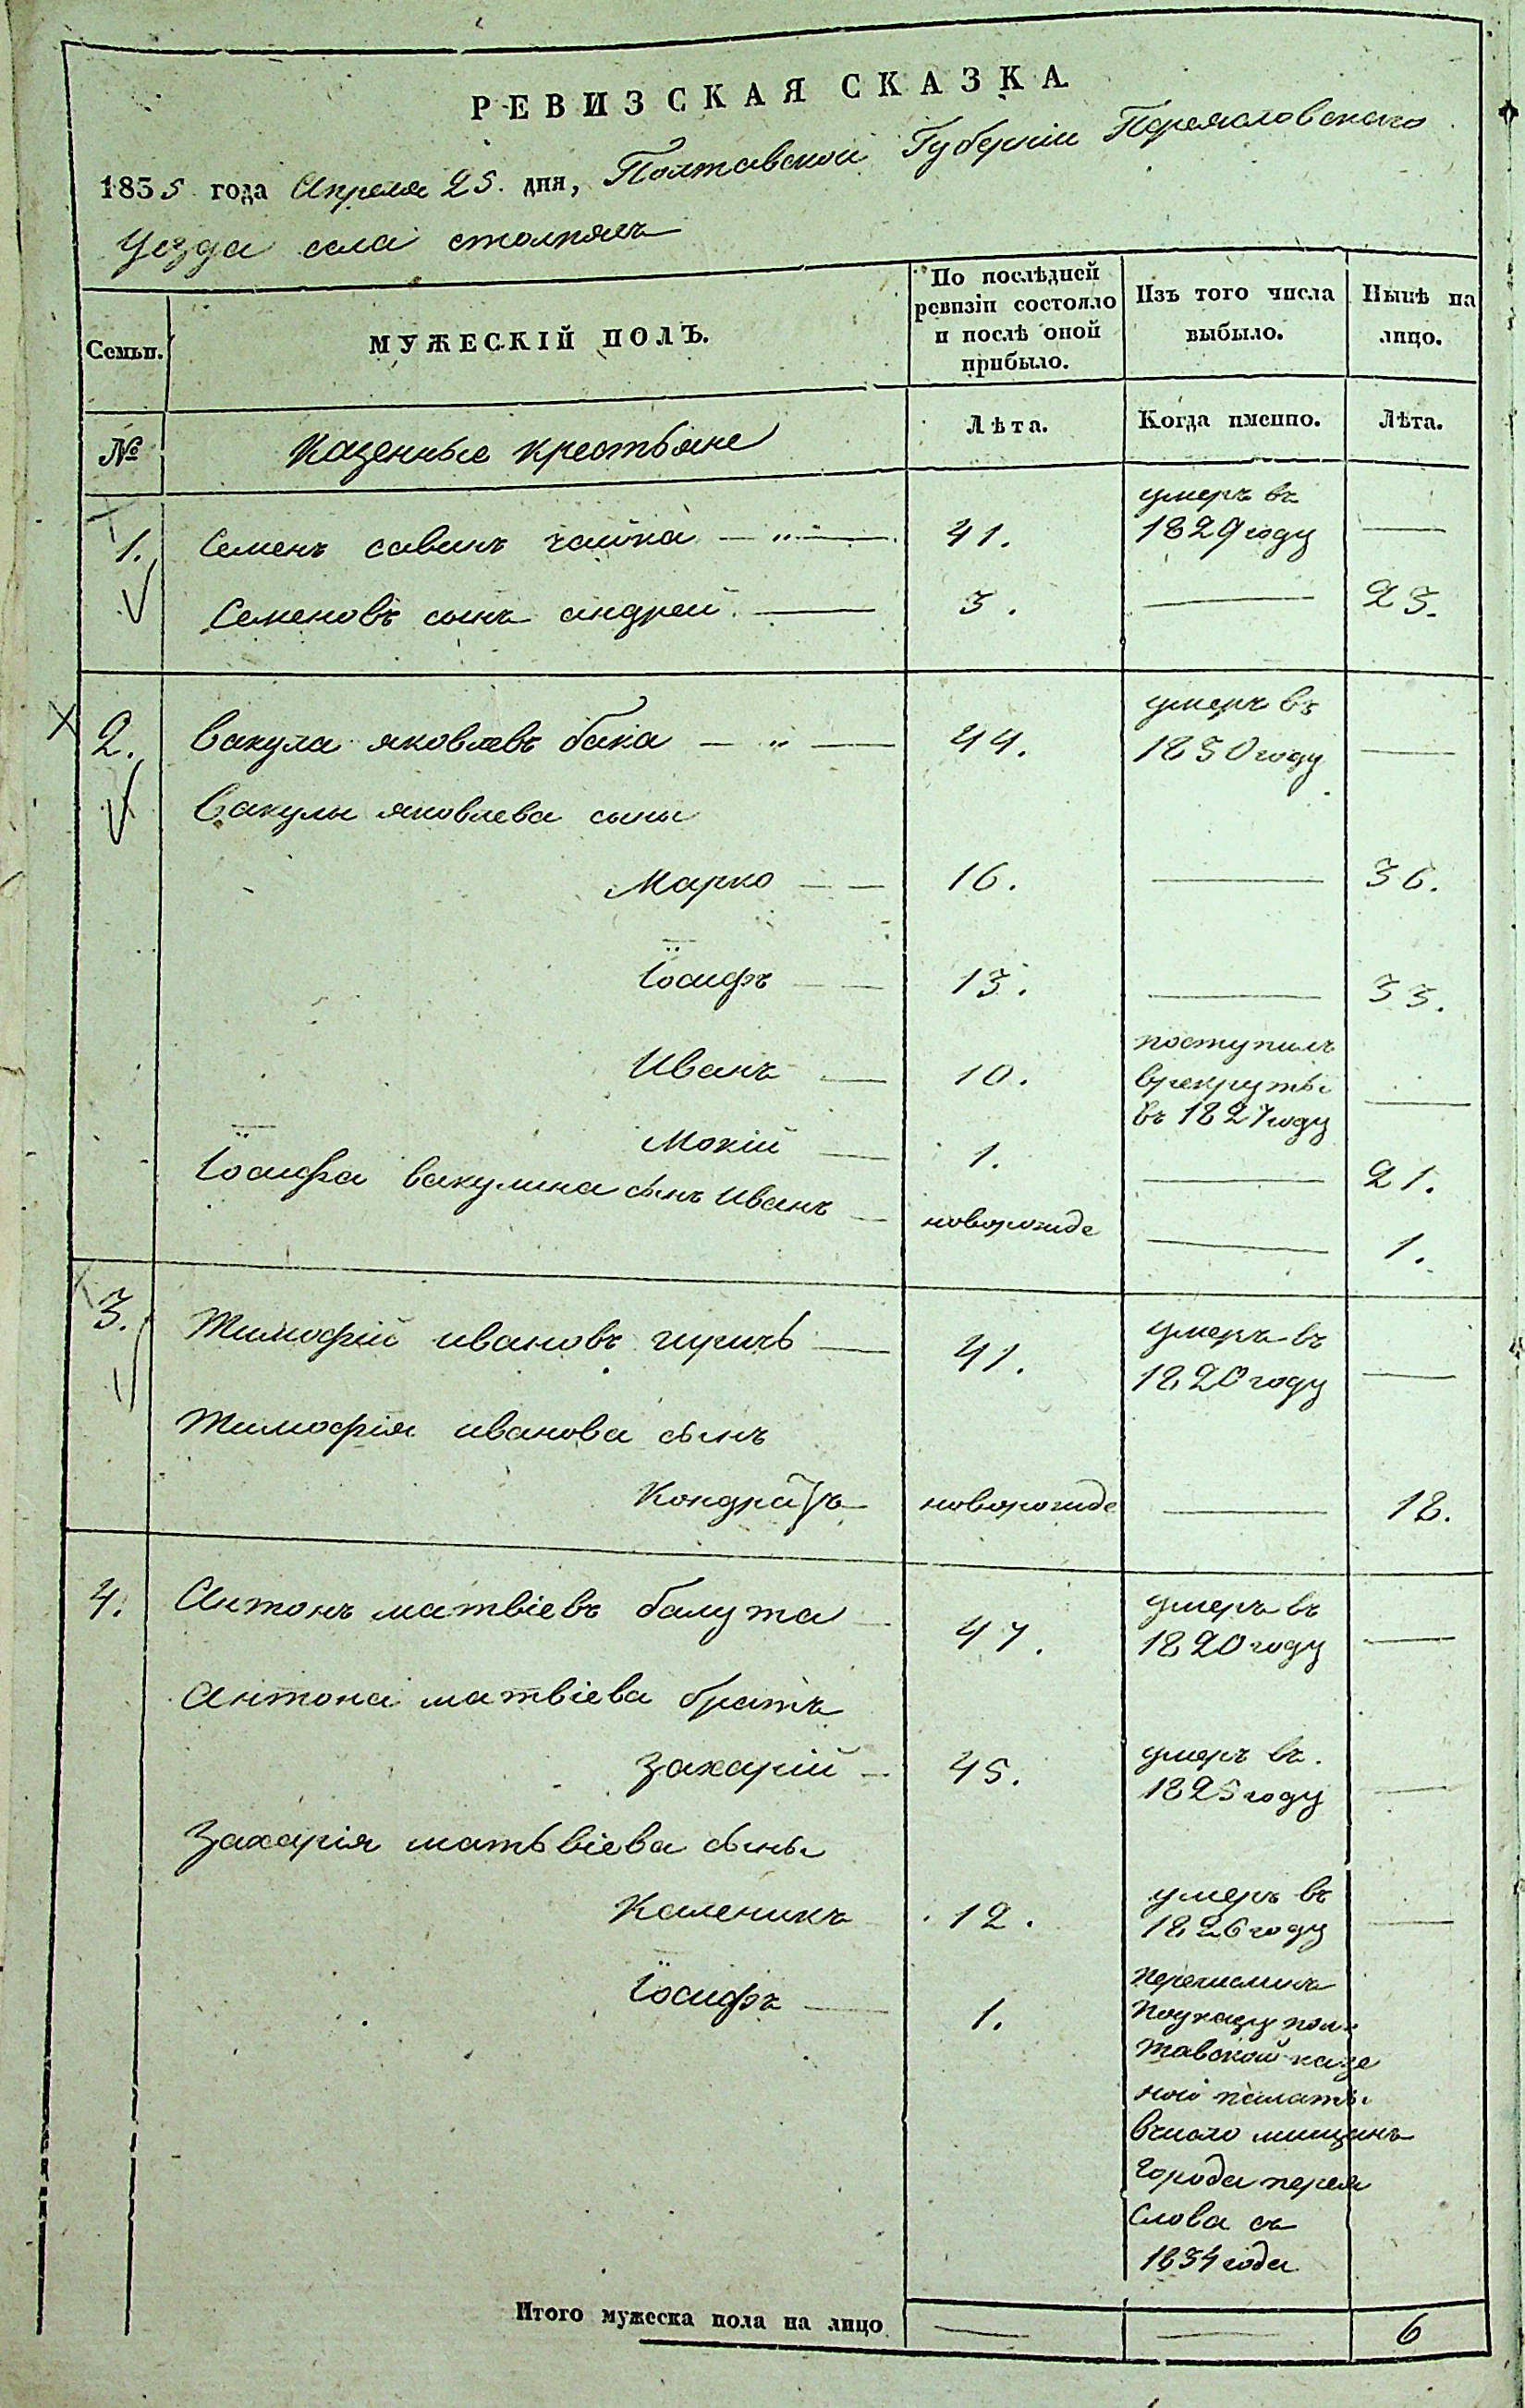 РЕВИЗСКАЯ СКАЗКА
1835 года Апреля 25. дня, Полтавской Губернїи Переяславского
Уезда села столпяг
Семьи.
МУЖЕСКІЙ ПОЛЪ.
По послѣдней ревизіи состояло и послѣ оной прибыло.
Изъ того числа выбыло.
Нынѣ на лицо.
№
Казенные крестьяне
Лѣта.
Когда именно.
Лѣта.
1. Семенъ савинъ чайка — „ — 41. умеръ въ 1829 году —
Семеновъ сынъ андрей — 3. — 23.
2. Вакула яковлевъ бака — „ — 44. умеръ въ 1830 году —
Вакулы яковлева сыны
Марко — — 16. — 36.
Їосифъ — — 13. — 33.
Иванъ — 10. поступилъ врекруты въ 1827 году —
Мокїй — 1. — 21.
Їосифа вакулина сынъ Иванъ — новорожде — 1.
3. Тимофїй ивановъ — 41. умеръ въ 1820 году —
Тимофїя иванова сынъ
Кондратъ новорожде — 18.
4. Антонъ матвїевъ балута — 47. умеръ въ 1820 году —
Антона матвїева братъ
Захарїй — 45. умеръ въ 1825 году —
Захарїя матьвїева сыны
Каленикъ 12. умеръ въ 1826 году —
Їосифъ — 1. перечислинъ
поуказу пол
тавской казе
ной палаты
вчисло мищинъ
города перея
слова съ
1834 года
Итого мужеска пола на лицо — — 6